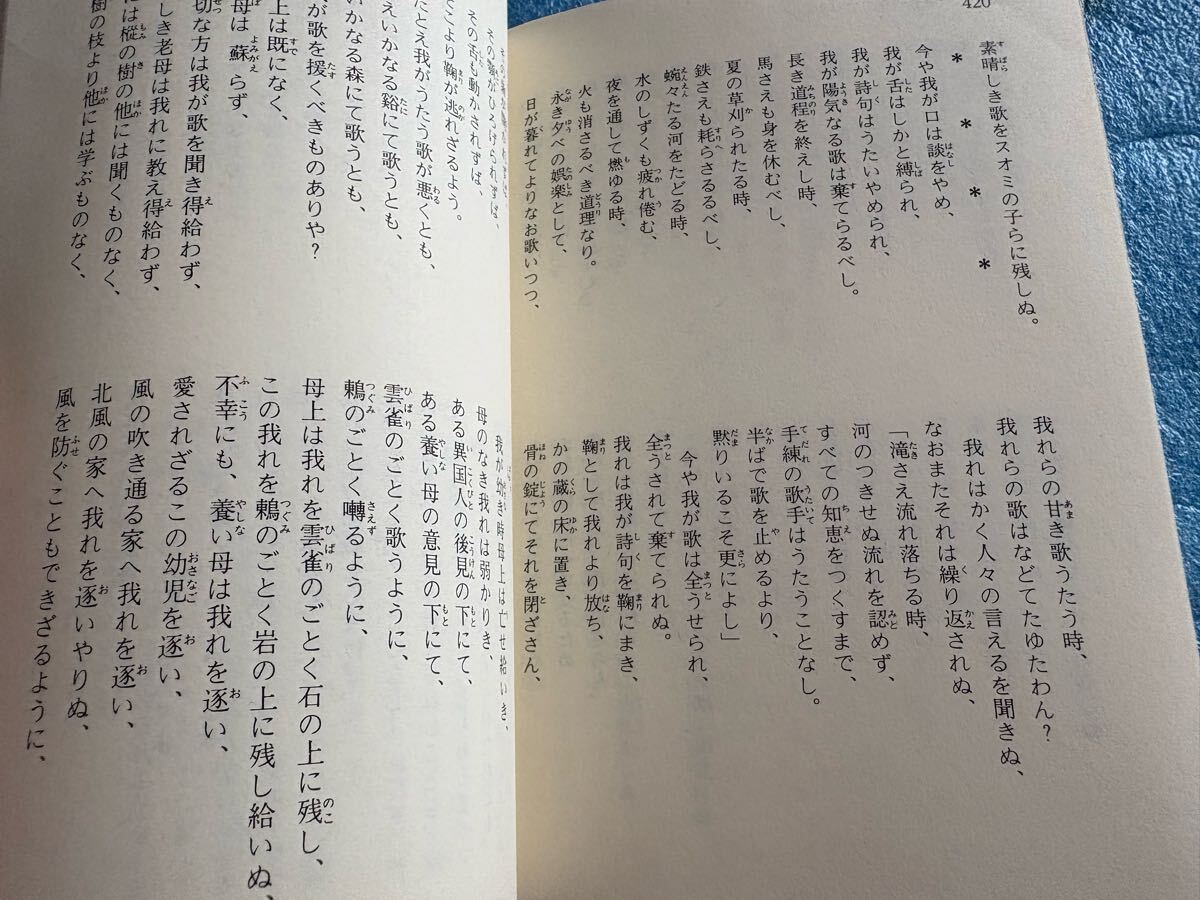 420
素晴しき歌をスオミの子らに残しぬ。
＊　＊　＊　＊
今や我が口は談をやめ、
我が舌はしかと縛られ、
我が詩句はうたいやめられ、
我が陽気なる歌は棄てらるべし。
長き道程を終えし時、
馬さえも身を休むべし、
夏の草刈られたる時、
鉄さえも耗らさるるべし、
蜿々たる河をたどる時、
水のしずくも疲れ倦む、
夜を通して燃ゆる時、
火も消さるべき道理なり。
永き夕べの娯楽として、
日が暮れてよりなお歌いつつ、
我れらの甘き歌うたう時、
我れらの歌はなどてたゆたわん？
我れはかく人々の言えるを聞きぬ、
なおまたそれは繰り返されぬ、
「滝さえ流れ落ちる時、
河のつきせぬ流れを認めず、
すべての知恵をつくすまで、
手練の歌手はうたうことなし。
半ばで歌を止めるより、
黙りいるこそ更によし」
今や我が歌は全うせられ、
全うされて棄てられぬ。
我れは我が詩句を鞠にまき、
鞠として我れより放ち、
かの蔵の床に置き、
骨の錠にてそれを閉ざさん、
その舌も動かされずば、
てこより鞠が逃れざるよう。
たとえ我がうたう歌が悪くとも、
えいかなる谿にて歌うとも、
いかなる森にて歌うとも、
が歌を援くべきものありや？
上は既になく、
母は蘇らず、
切な方は我が歌を聞き得給わず、
しき老母は我れに教え得給わず、
には樅の樹の他には聞くものなく、
樹の枝より他には学ぶものなく、
我が幼き時母上は亡せ給いき、
母のなき我れは弱かりき、
ある異国人の後見の下にて、
ある養い母の意見の下にて、
雲雀のごとく歌うように、
鶫のごとく囀るように、
母上は我れを雲雀のごとく石の上に残し、
この我れを鶫のごとく岩の上に残し給いぬ、
不幸にも、養い母は我れを逐い、
愛されざるこの幼児を逐い、
風の吹き通る家へ我れを逐い、
北風の家へ我れを逐いやりぬ、
風を防ぐこともできざるように、